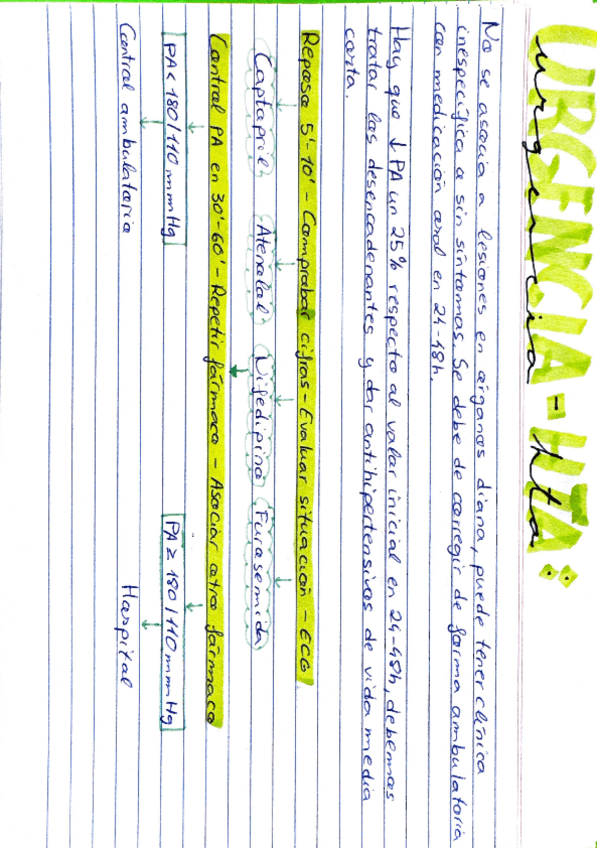 URGENCIA - HTA:
urgencia - hta
No se asocia a lesiones en órganos diana, puede tener clínica
inespecífica o sin síntomas. Se debe de corregir de forma ambulatoria
con medicación oral en 24-48h.
Hay que ↓ PA un 25% respecto al valor inicial en 24-48h, debemos
tratar los desencadenantes y dar antihipertensivos de vida media
corta.
Reposo 5'-10' - Comprobar cifras - Evaluar situación - ECG
Captopril Atenolol Nifedipino Furosemida
Control PA en 30'-60' - Repetir fármaco - Asociar otro fármaco
PA < 180/110 mmHg PA ≥ 180/110 mmHg
Control ambulatorio Hospital